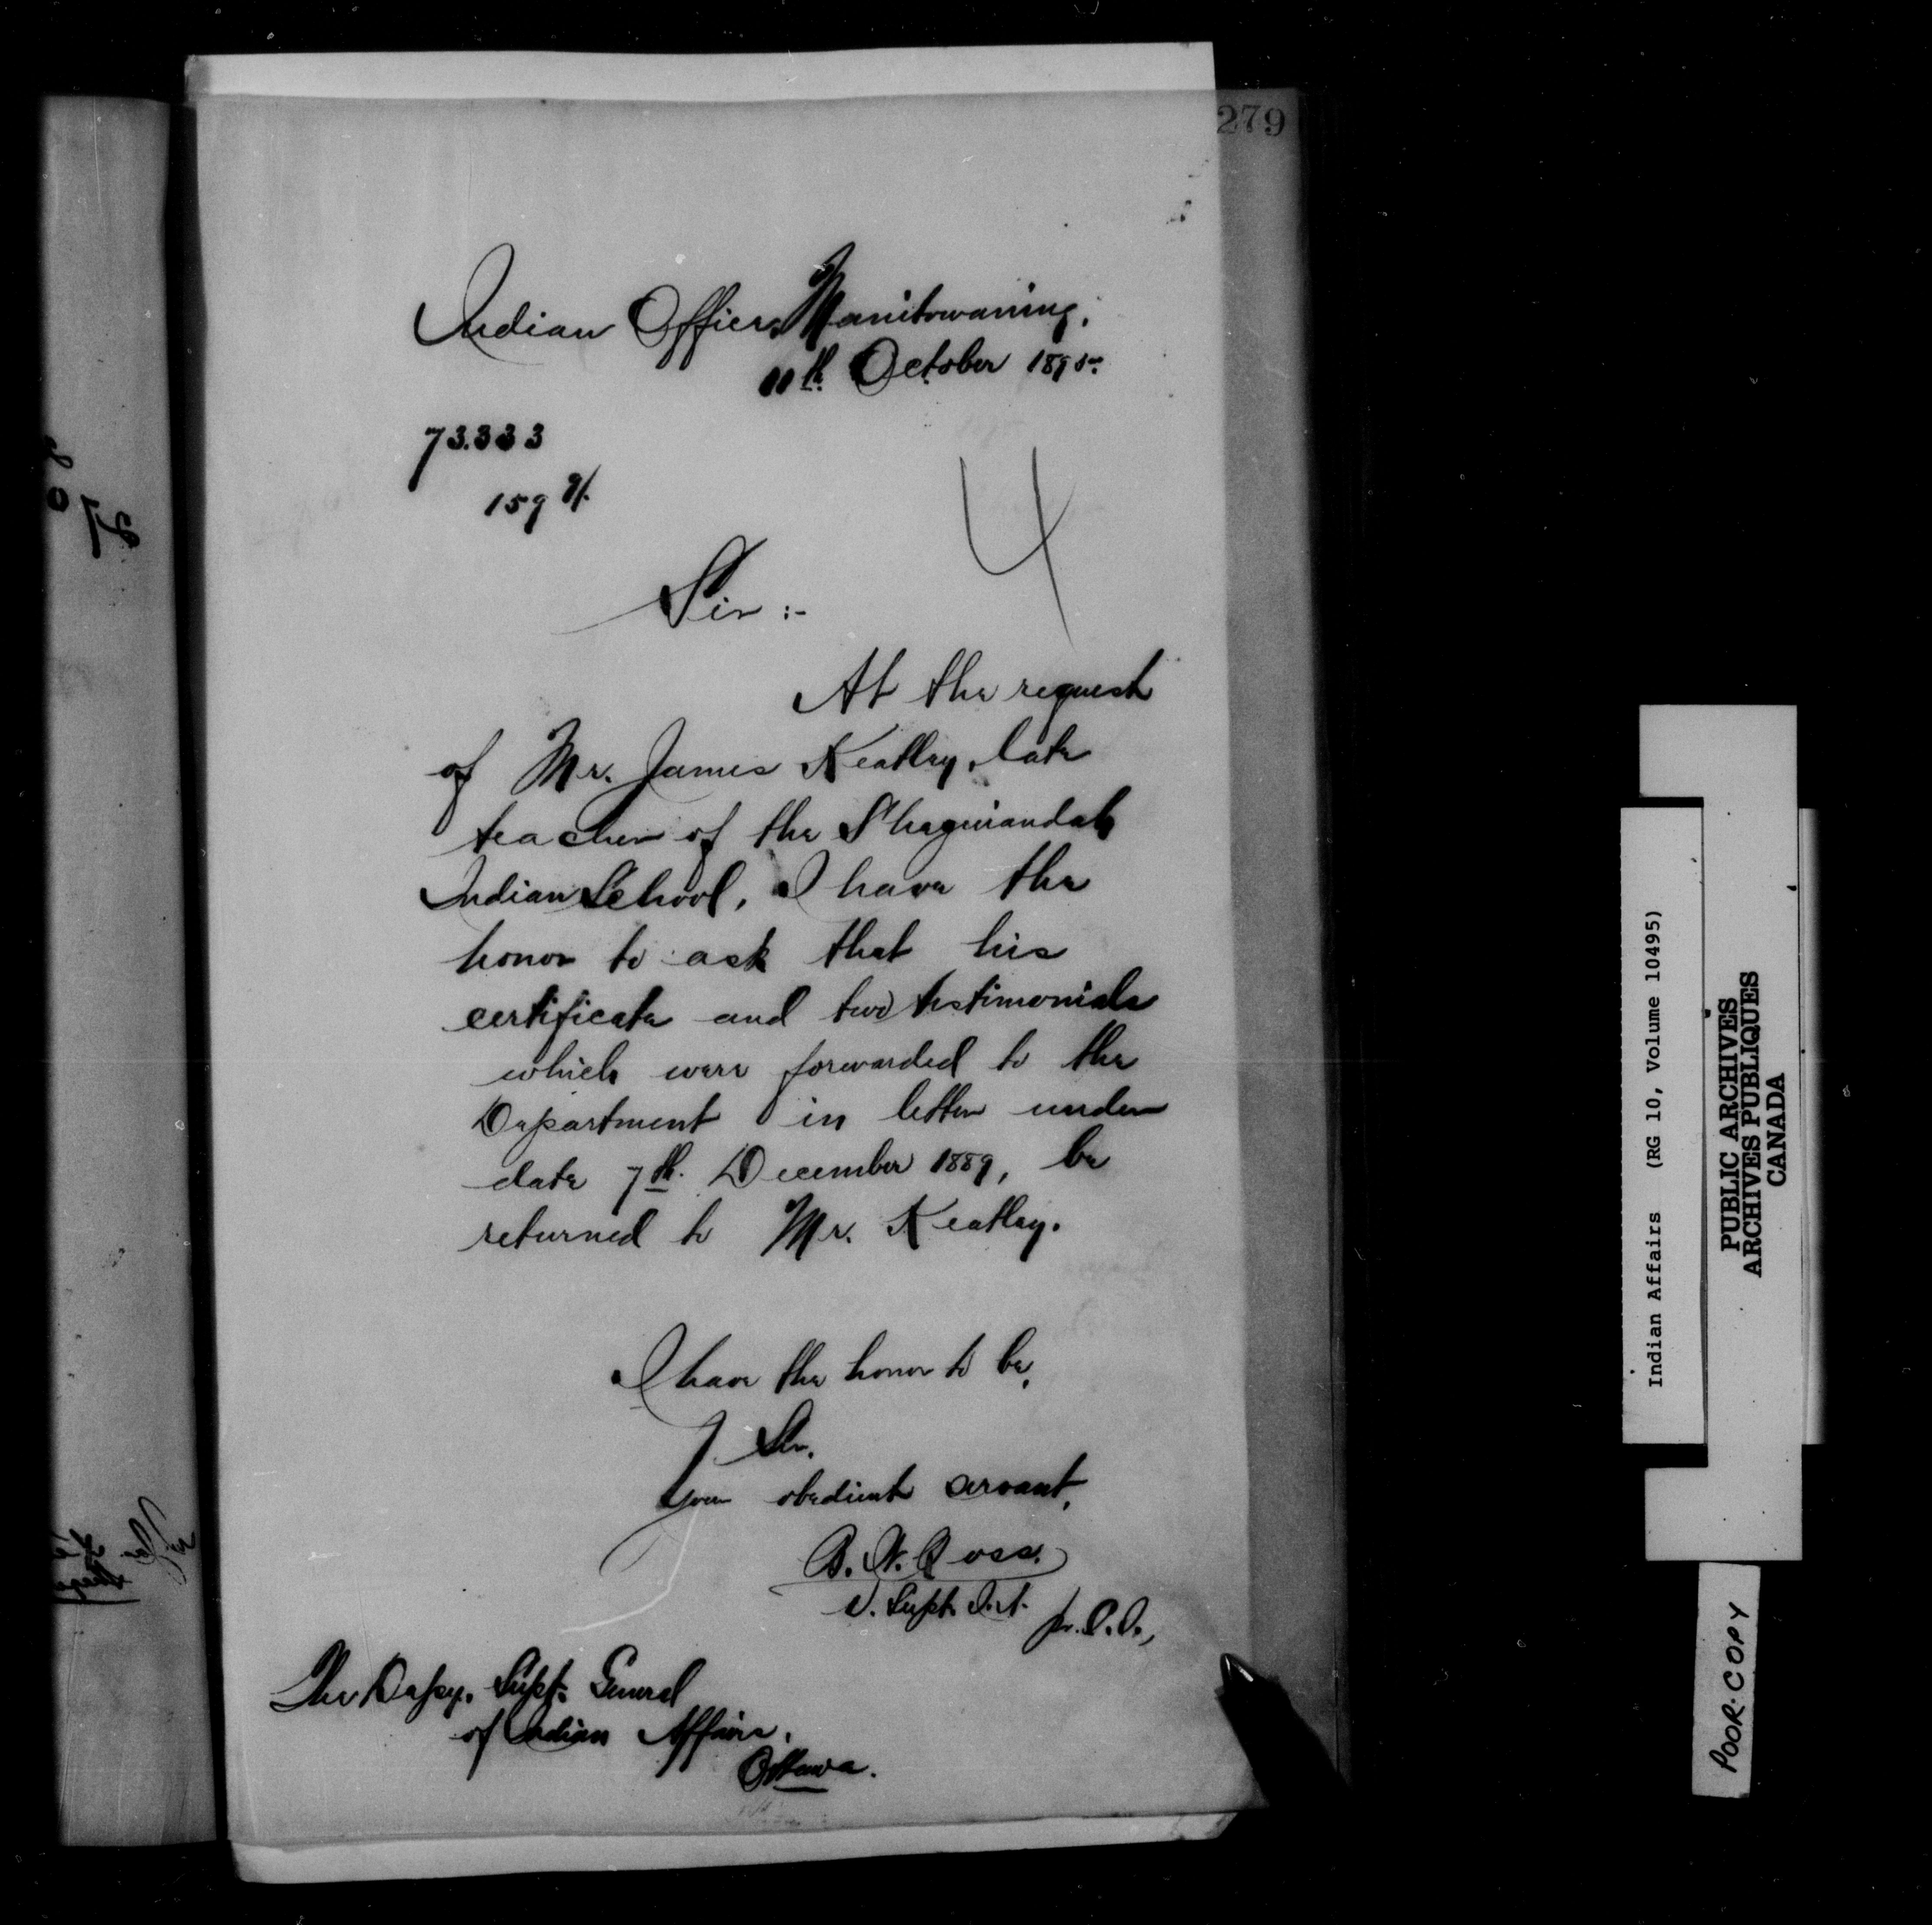 279
Indian Office, Manitowaning,
11th. October 1895.
73.333
159
4
Sir :-
At the request
of Mr. James Keatley, late
teacher of the Sheguiandah
Indian School, I have the
honor to ask that his
certificate and two testimonials
which were forwarded to the
Department in letter under
date 7th. December 1889, be
returned to Mr. Keatley.
I have the honor to be,
Sir,
Your obedient servant,
B. W. Ross.
V. Supt. I.A.
The Depy. Supt. General
of Indian Affairs,
Ottawa.
Indian Affairs (RG 10, Volume 10495)
PUBLIC ARCHIVES
ARCHIVES PUBLIQUES
CANADA
POOR COPY